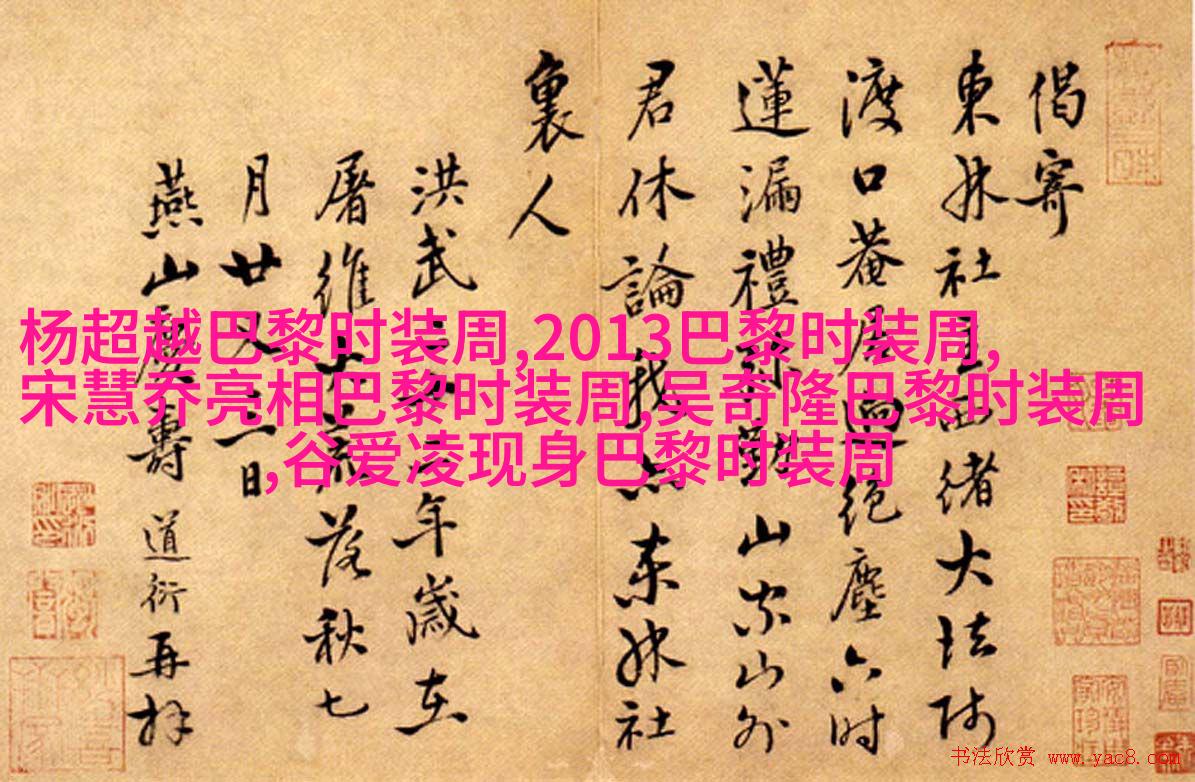 杨超越巴黎时装周,2013巴黎时装周,
宋慧乔亮相巴黎时装周,吴奇隆巴黎时装周
,谷爱凌现身巴黎时装周
偈寄
東林社主西緒大法師
渡口菴居迥絕塵六時
蓮漏禮山家山外
君休論我亦東林社
裏人
洪武年歲在
屠維大荒落秋七
月廿又一日
燕山慶壽道衍再拜
书法欣赏 www.yac8.com